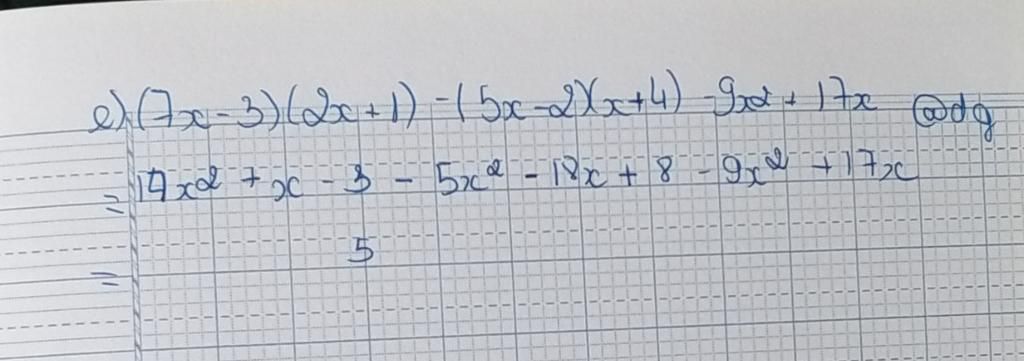 e) (7x - 3)(2x + 1) - (5x - 2)(x + 4) - 9x² + 17x @dg
= 14x² + x - 3 - 5x² - 18x + 8 - 9x² + 17x
= 5